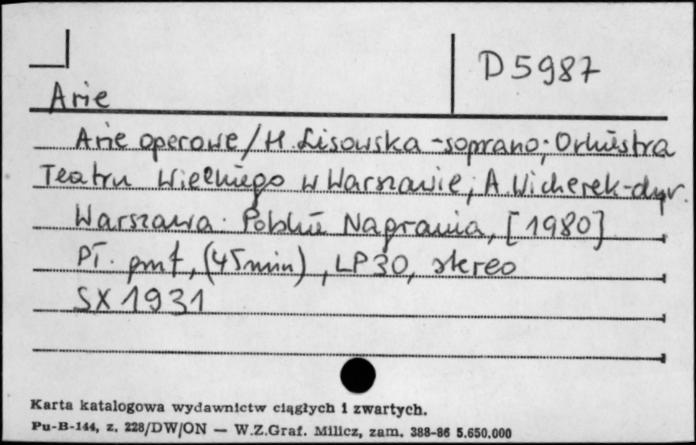 D5987
Arie
Arie operowe / H. Lisowska - soprano; Orkiestra
Teatru Wielkiego w Warszawie; A. Wicherek - dyr.
Warszawa: Polskie Nagrania, [1980]
Pł. gramf, (45 min), LP 30, stereo
SX 1931
Karta katalogowa wydawnictw ciągłych i zwartych.
Pu-B-144, z. 228/DW/ON — W.Z.Graf. Milicz, zam. 388-86 5.650.000